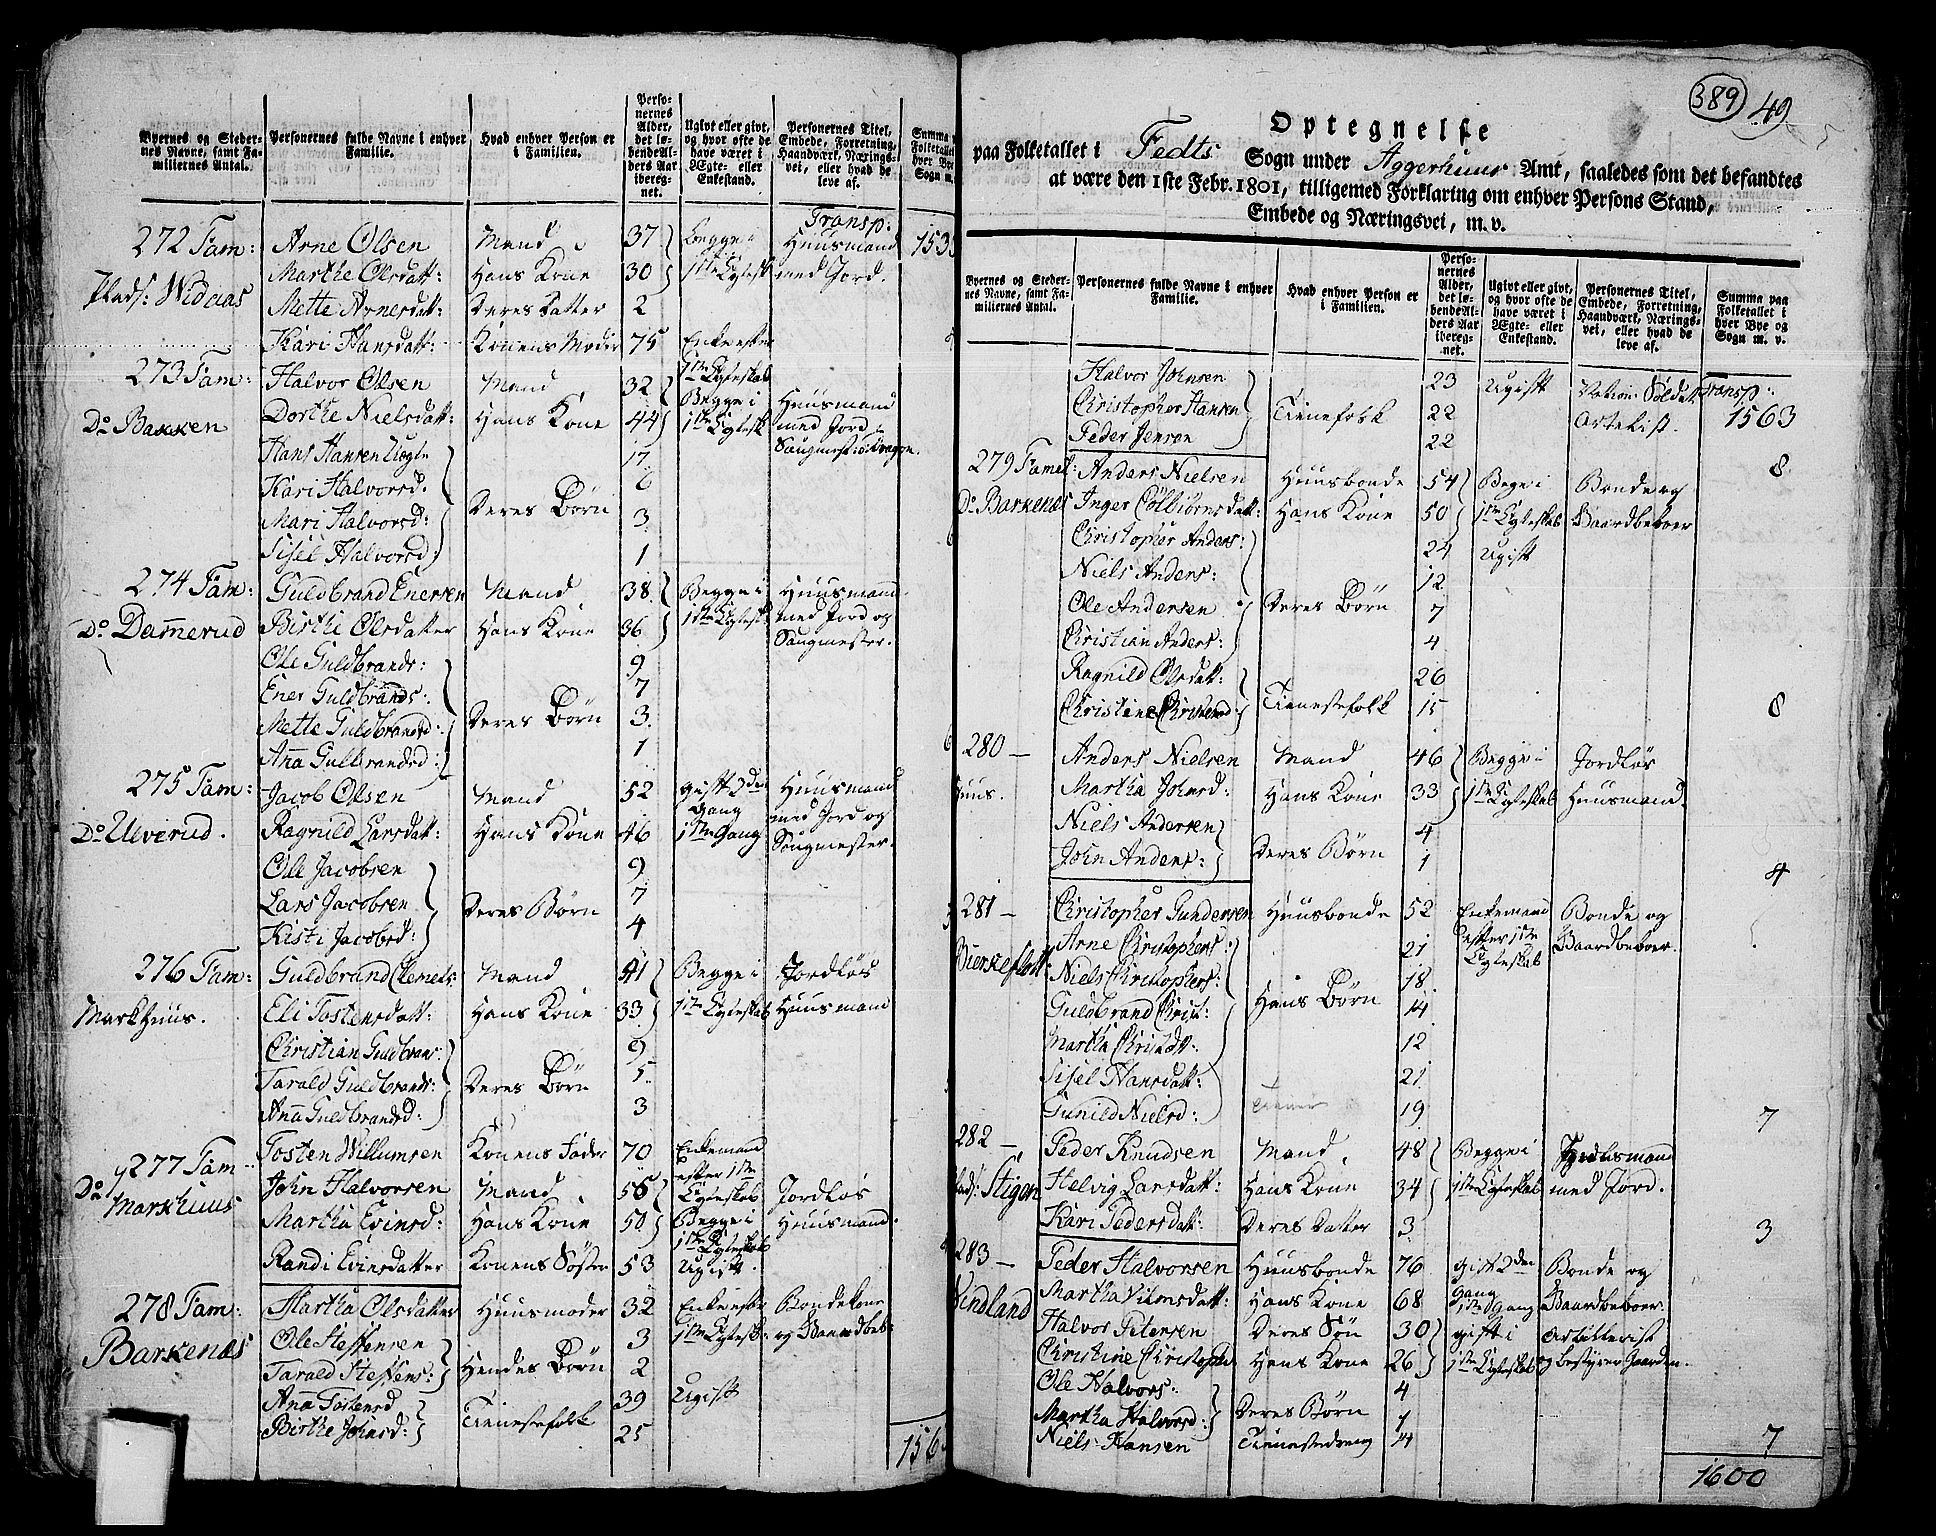 Byernes og Steder- Personernes fulde Navne i enhver Hvad enhver Person er Perso- Ugivt eller givt, Personernes Titel, Summa
nes Navne, samt Fa- Familie. i Familien. nernes og hvor ofte de Embede, Forretning, Folketallet
miliernes Antal. Alder, have været i Haandværk, Nærings- hver Bye
det lø- Ægte- eller vei, eller hvad de Sogn m.
bende Al- Enkestand. leve af.
ders Aar
ibereg-
net.
Transp:
272 Fam: Arne Olsen Mand 37 Begge i Huusmand 153
Marthe Olsdatt: Hans Kone 30 1ste Egtesk med Jord.
Plads: Nidaas Mette Arnesdatt: Deres Datter 2
Kari Hansdatt: Konens Moder 75 Enke efter
1ste Egteskab
273 Fam: Halvor Olsen Mand 32 Begge i Huusmand
Do Bakken Dorthe Nielsdatt: Hans Kone 44 1ste Egtesk med Jord
Hans Hansen Uegte 17
Kari Halvorsd. 6
Mari Halvorsd: Deres Børn 3
Sisel Halvorsd: 1
274 Fam: Guldbrand Enersen Mand 38 Begge i Huusmand
Do Damerud Birthe Olsdatter Hans Kone 36 1ste Egtesk: med Jord og
Saugmester.
Ole Guldbrands: 9
Ener Guldbrands: 7
Mette Guldbrandsd: Deres Børn 3
Ana Gulbrandsd: 1
275 Fam: Jacob Olsen Mand 52 gift 2den Huusmand
Gang med Jord og
Do Ulverud. Ragnild Larsdatt: Hans Kone 46 1ste Gang Saugmester.
Ole Jacobsen 9
Lars Jacobsen Deres Børn 7
Kisti Jacobsd: 4
276 Fam: Guldbrand Clemets: Mand 41 Begge i Jordløs
Markhuus. Eli Tostensdatt: Hans Kone 33 1ste Egteskab Huusmand
Christian Guldbrans: 9
Tarald Guldbrands: Deres Børn 5
Ana Guldbrandsd: 3
277 Fam Tosten Willumsen Konens Fader 70 Enkemand
efter 1ste
Do Markhuus John Halvorsen Mand 56 Egteskab Jordløs
Martha Evinsd: Hans Kone 50 Begge i Huusmand.
1ste Egteskab
Randi Evinsdatter Konens Søster 53 Ugift.
278 Fam: Martha Olsdatter Huusmoder 32 Enke efter Bondekone
Barkenæs Ole Steffensen 3 1ste Egtesk: og Gaardbeb:
Tarald Steffens: Hendes Børn 2
Ana Tostensd Tienestefolk 39 Ugift
Birthe Johnsd: 25
156
389 49
Optegnelse
paa Folketallet i Fedts Sogn under Aggerhuus Amt, saaledes som det befandtes
at være den 1ste Febr. 1801, tilligemed Forklaring om enhver Persons Stand,
Embede og Næringsvei, m. v.
Byernes og Steder- Personernes fulde Navne i enhver Hvad enhver Person er Perso- Ugivt eller givt, Personernes Titel, Summa paa
nes Navne, samt Fa- Familie. i Familien. nernes og hvor ofte de Embede, Forretning, Folketallet i
miliernes Antal. Alder, have været i Haandværk, Nærings- hver Bye og
det lø- Ægte- eller vei, eller hvad de Sogn m. v.
bende Al- Enkestand. leve af.
ders Aar
ibereg-
net.
Halvor Johnsen 23 Ugift Nation: Soldat Transp:
Christopher Hansen Tienefolk 22 1563
Peder Jensøn 22
279 Famil: Anders Nielsen Huusbonde 54 Begge i Bonde og 8
Do Barkenæs Inger Colbiørnsdatt: Hans Kone 50 1ste Egteskab Gaardbeboer
Christopher Anders: 24 Ugift
Niels Anders: 12
Ole Andersen Deres Børn 7
Christian Anders: 4
Ragnild Olsdatt: Tienestefolk 26
Christine Christensd: 15 8
280 — Anders Nielsen Mand 46 Begge i Jordløs
Huus. Martha Johnsd: Hans Kone 33 1ste Egteskab Huusmand.
Niels Andersen Deres Børn 4
John Anders: 1 4
281 — Christopher Gundersen Huusbonde 52 Enkemand Bonde og
Arne Christophers: 21 efter 1ste Gaardbeboer.
Egteskab
Bierkeflett Niels Christophers: 18
Guldbrand Christ: Hans Børn 14
Martha Christdt: 12
Sisel Hansdatt: 21
Gunild Nielsd: Tiener 19 7
282 — Peder Knudsen Mand 48 Begge i Huusmand
Stigen Helvig Larsdatt: Hans Kone 34 1ste Egteskab med Jord.
Kari Pedersdatt: Deres Datter 3 3
283 — Peder Halvorsen Huusbonde 76 gift 2den Bonde og
Gang
Vindland Martha Vilmsdatt: Hans Kone 68 1ste Gang Gaardbeboer.
Halvor Petersen Deres Søn 30 gift i Artillerist
Christine Christoph: Hans Kone 26 1ste Egteskab og bestyrer Gaarden.
Ole Halvors: Deres Børn 4
Martha Halvorsd: 1
Niels Hansen Tienestedreng 14 7
1600